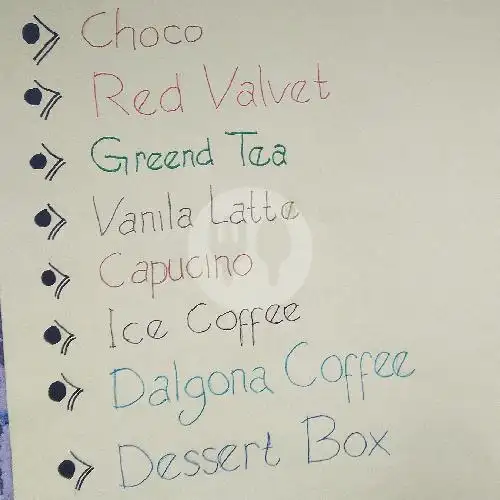 Choco
Red Valvet
Greend Tea
Vanila Latte
Capucino
Ice Coffee
Dalgona Coffee
Dessert Box